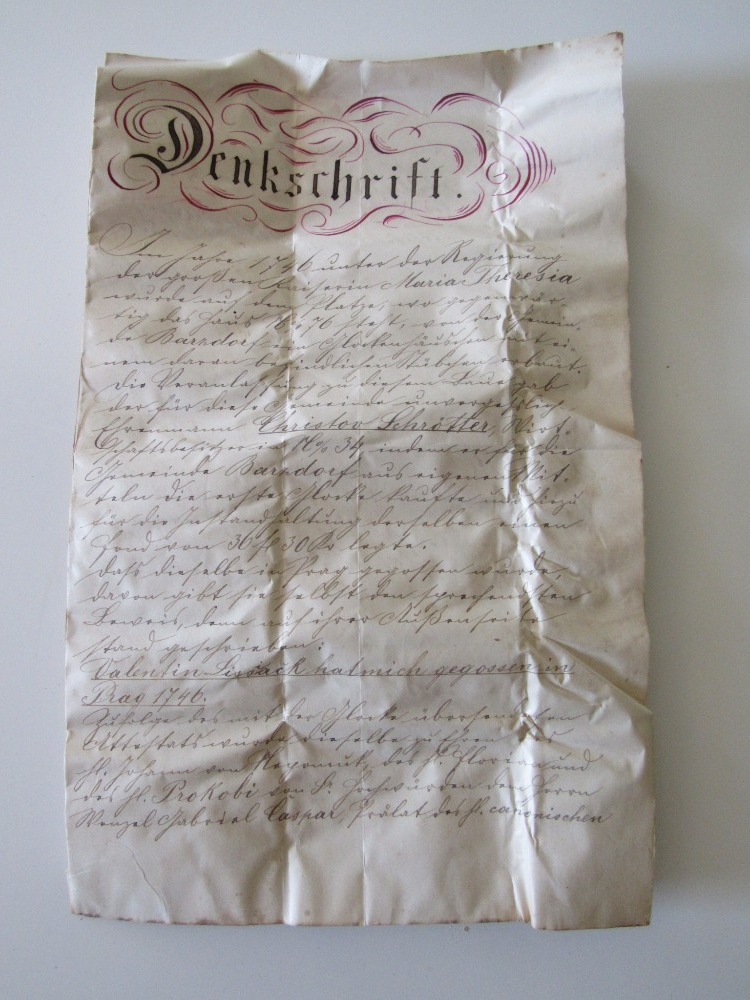 Denkschrift.
Im Jahre 1746 unter der Regierung
der großen Kaiserin Maria Theresia
wurde auf dem Platze, wo gegenwär-
tig das Haus No 76 steht, von der Gemein-
de Barzdorf ein Glockenhäuschen mit ei-
nem daran befindlichen Stübchen erbaut.
Die Veranlassung zu diesem Baue gab
der für diese Gemeinde unvergeßliche
Ehrenmann Christov Schrötter, Wirt-
schaftsbesitzer in No 34, indem er für die
Gemeinde Barzdorf aus eigenen Mit-
teln die erste Glocke kaufte und hiezu
für die Instandhaltung derselben einen
Fond von 36 fl 30 Kr legte.
Dass dieselbe in Prag gegossen wurde,
davon gibt sie selbst den sprechendsten
Beweis, denn auf ihrer Außenseite
stand geschrieben:
Valentin Lissack hat mich gegossen in
Prag 1746.
Zufolge des mit der Glocke übersendeten
Attestats wurde dieselbe zu Ehren des
hl. Johann von Nepomuk, des hl. Florian und
des hl. Prokobi von Sr. Hochwürden dem Herrn
Wenzel Gabriel Caspar, Prälat des hl. canonischen